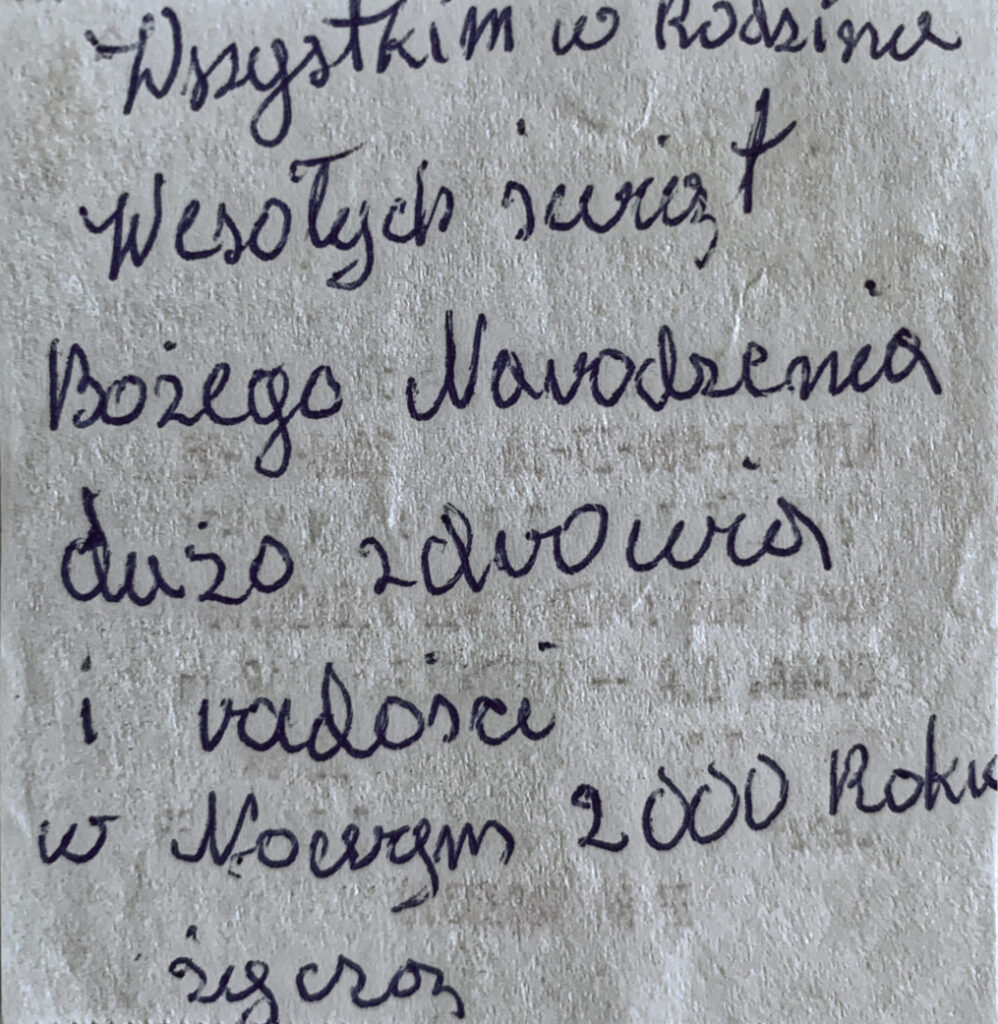 Wszystkim w Rodzinie
Wesołych świąt
Bożego Narodzenia
dużo zdrowia
i radości
w Nowym 2000 Roku
życzą